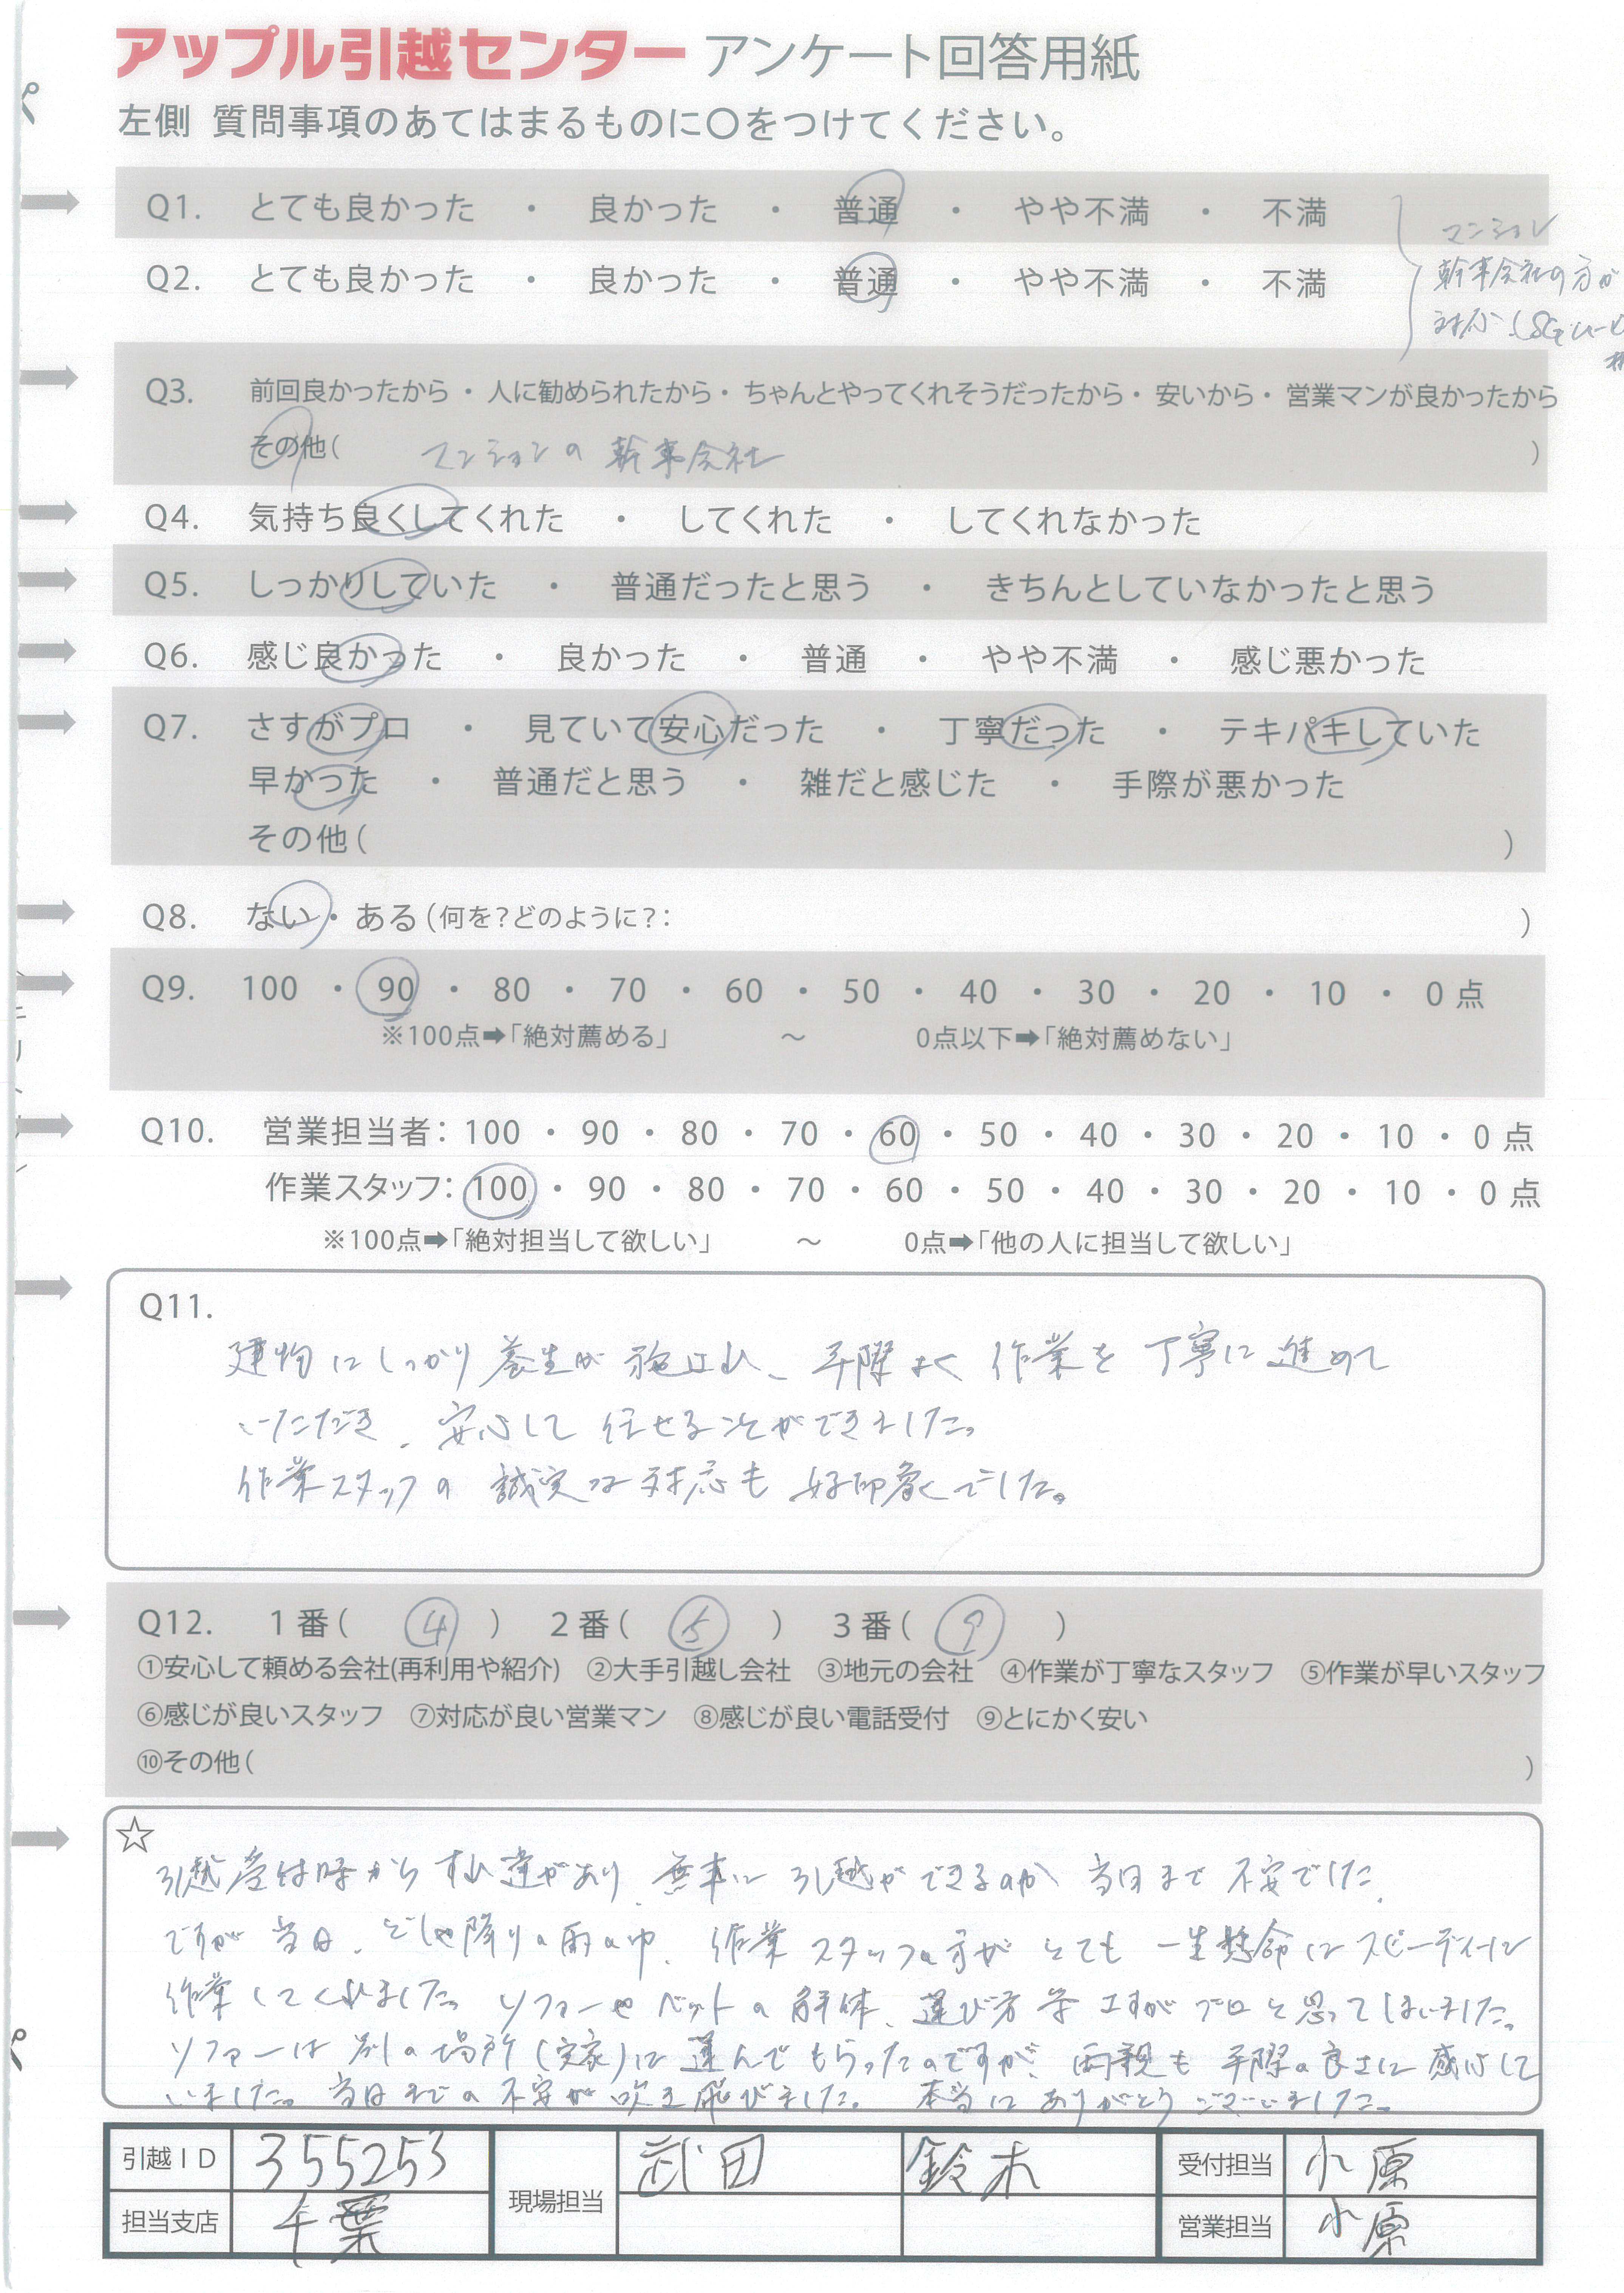 アップル引越センター アンケート回答用紙
左側 質問事項のあてはまるものに〇をつけてください。
Q1. とても良かった ・ 良かった ・ 普通 ・ やや不満 ・ 不満
Q2. とても良かった ・ 良かった ・ 普通 ・ やや不満 ・ 不満
マンション
幹事会社の方が
対応(SGムービ
Q3. 前回良かったから ・ 人に勧められたから ・ ちゃんとやってくれそうだったから ・ 安いから ・ 営業マンが良かったから
その他( マンションの幹事会社 )
Q4. 気持ち良くしてくれた ・ してくれた ・ してくれなかった
Q5. しっかりしていた ・ 普通だったと思う ・ きちんとしていなかったと思う
Q6. 感じ良かった ・ 良かった ・ 普通 ・ やや不満 ・ 感じ悪かった
Q7. さすがプロ ・ 見ていて安心だった ・ 丁寧だった ・ テキパキしていた
早かった ・ 普通だと思う ・ 雑だと感じた ・ 手際が悪かった
その他( )
Q8. ない ・ ある (何を?どのように?: )
Q9. 100 ・ 90 ・ 80 ・ 70 ・ 60 ・ 50 ・ 40 ・ 30 ・ 20 ・ 10 ・ 0 点
※100点➡「絶対薦める」 ～ 0点以下➡「絶対薦めない」
Q10. 営業担当者: 100 ・ 90 ・ 80 ・ 70 ・ 60 ・ 50 ・ 40 ・ 30 ・ 20 ・ 10 ・ 0 点
作業スタッフ: 100 ・ 90 ・ 80 ・ 70 ・ 60 ・ 50 ・ 40 ・ 30 ・ 20 ・ 10 ・ 0 点
※100点➡「絶対担当して欲しい」 ～ 0点➡「他の人に担当して欲しい」
Q11.
建物にしっかり養生が施され、手際よく作業を丁寧に進めて
いただき、安心して任せることができました。
作業スタッフの誠実な対応も好印象でした。
Q12. 1番( ④ ) 2番( ⑤ ) 3番( ⑨ )
①安心して頼める会社(再利用や紹介) ②大手引越し会社 ③地元の会社 ④作業が丁寧なスタッフ ⑤作業が早いスタッフ
⑥感じが良いスタッフ ⑦対応が良い営業マン ⑧感じが良い電話受付 ⑨とにかく安い
⑩その他( )
☆
引越受付時からすれ違いがあり、無事に引越ができるのか当日まで不安でした。
ですが当日、どしゃ降りの雨の中、作業スタッフの方がとても一生懸命にスピーディーに
作業してくれました。ソファーやベットの解体、運び方等さすがプロと思ってしまいました。
ソファーは別の場所(実家)に運んでもらったのですが、両親も手際の良さに感心して
いました。当日までの不安が吹き飛びました。本当にありがとうございました。
引越ID 355253 現場担当 武田 鈴木 受付担当 小原
担当支店 千葉 営業担当 小原